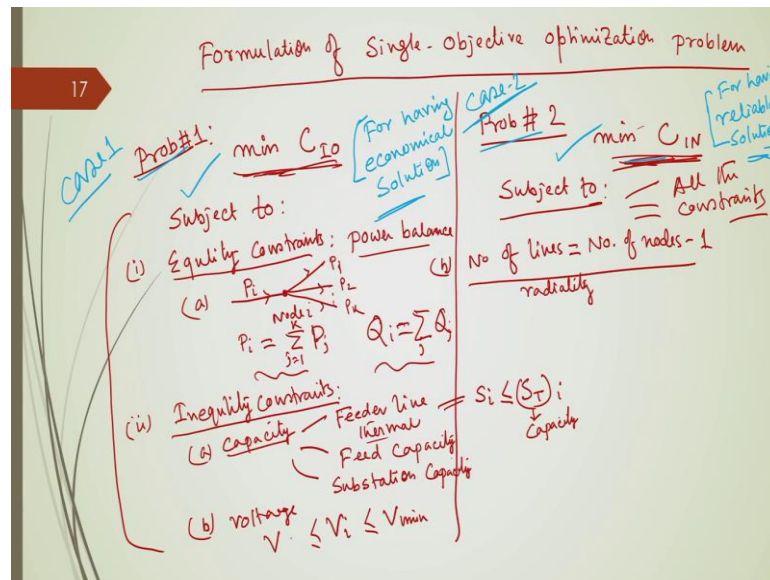 Formulation of Single-Objective optimization problem
17
Case 1
Prob#1: min C_IO
[For having economical Solution]
Subject to:
(i) Equlity Constraints: power balance
(a) P_i Node i P_1 P_2 P_K
P_i = Σ_{j=1}^{K} P_j Q_i = Σ_j Q_j
(b) No of lines = No. of nodes - 1
radiality
(ii) Inequlity constraints:
(a) Capacity Feeder line S_i ≤ (S_T)_i
thermal Capacity
Feed Capacity
Substation Capacity
(b) voltage
V ≤ V_i ≤ V_min
Case-2
Prob # 2 min C_IN
[For having reliable Solution
Subject to: All the constraints